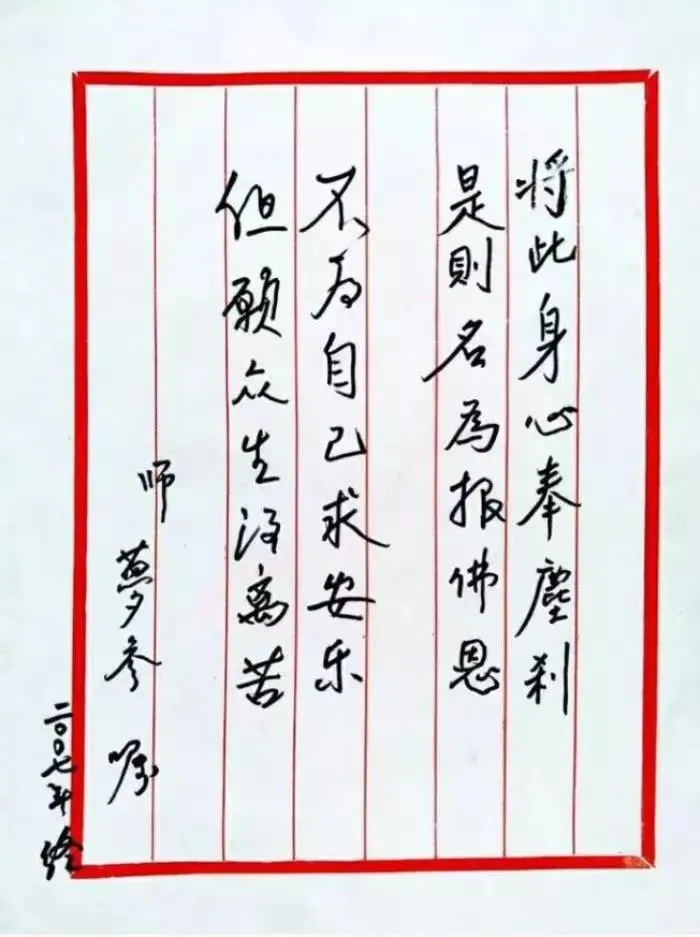 将此身心奉塵刹
是則名為报佛恩
不为自己求安乐
但願众生得离苦
师 夢参 嘱
二〇〇七年终